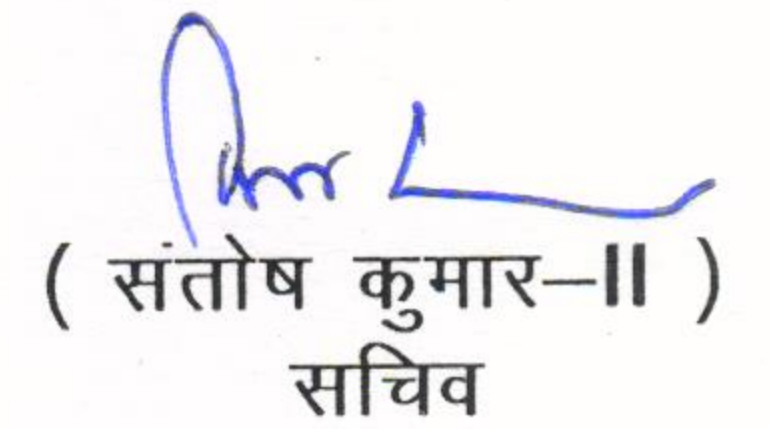 ( संतोष कुमार–II )
सचिव